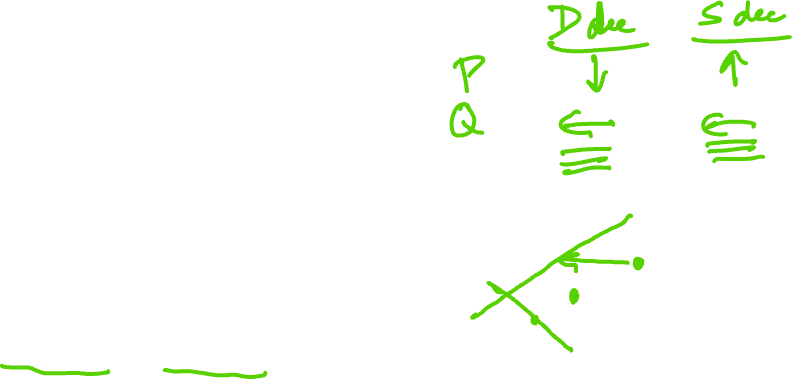 D dec S dec
P ↓ ↑
Q ← ←